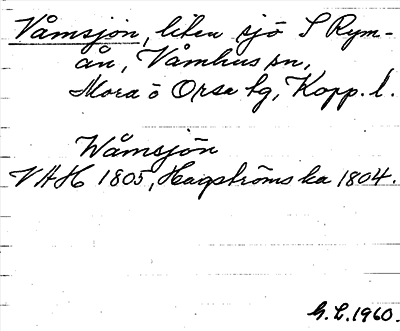 Våmsjön, liten sjö S Rym-
ån, Våmhus sn,
Mora ö Orsa tg, Kopp. l.
Wåmsjön
VAH 1805, Hagströms ka 1804.
G. L. 1960.